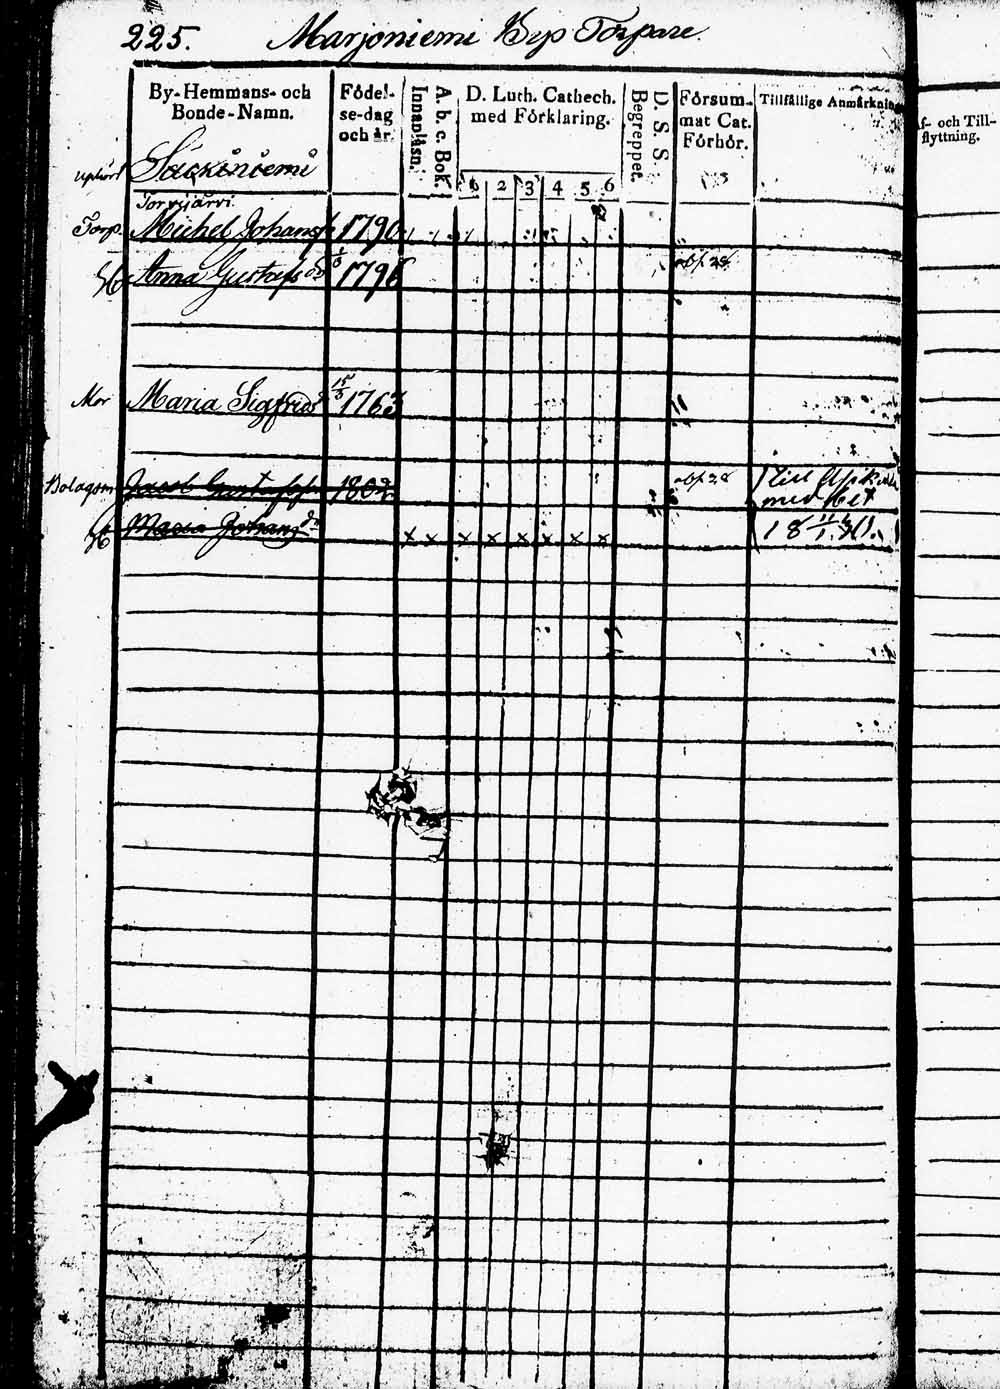 225. Marjoniemi Byp Torpare.
By-Hemmans- och Bonde-Namn.
Födel-se-dag och år.
Innanläsn.
A. b. c. Bok.
D. Luth. Cathech. med Förklaring.
1 2 3 4 5 6
D. S. S. Begreppet.
Försum-mat Cat. Förhör.
Tillfällige Anmärkning
f- och Till-flyttning.
Säckäniemi
Torp. Michel Johansp 1790
H Anna Gustafs dr 1796
Mor Maria Sigfrids 15/5 1763
Bolagsm Jacob Gustafsp 1802 abs. 28 Till
med bet
H Maria Johans dr x x x x x x x x 18